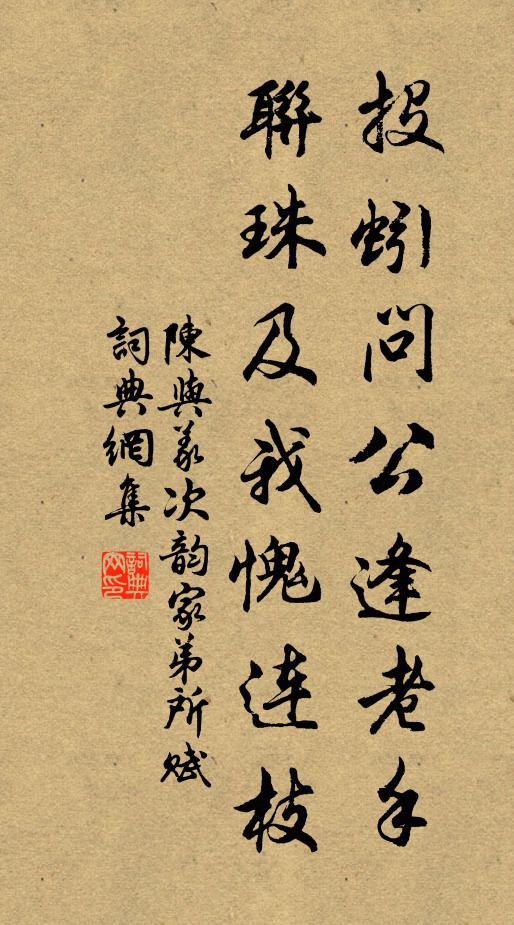 投蚓问公逢老手
聯珠及我愧连枝
陳與義次韵家弟所赋
詞典網集
詞典网印